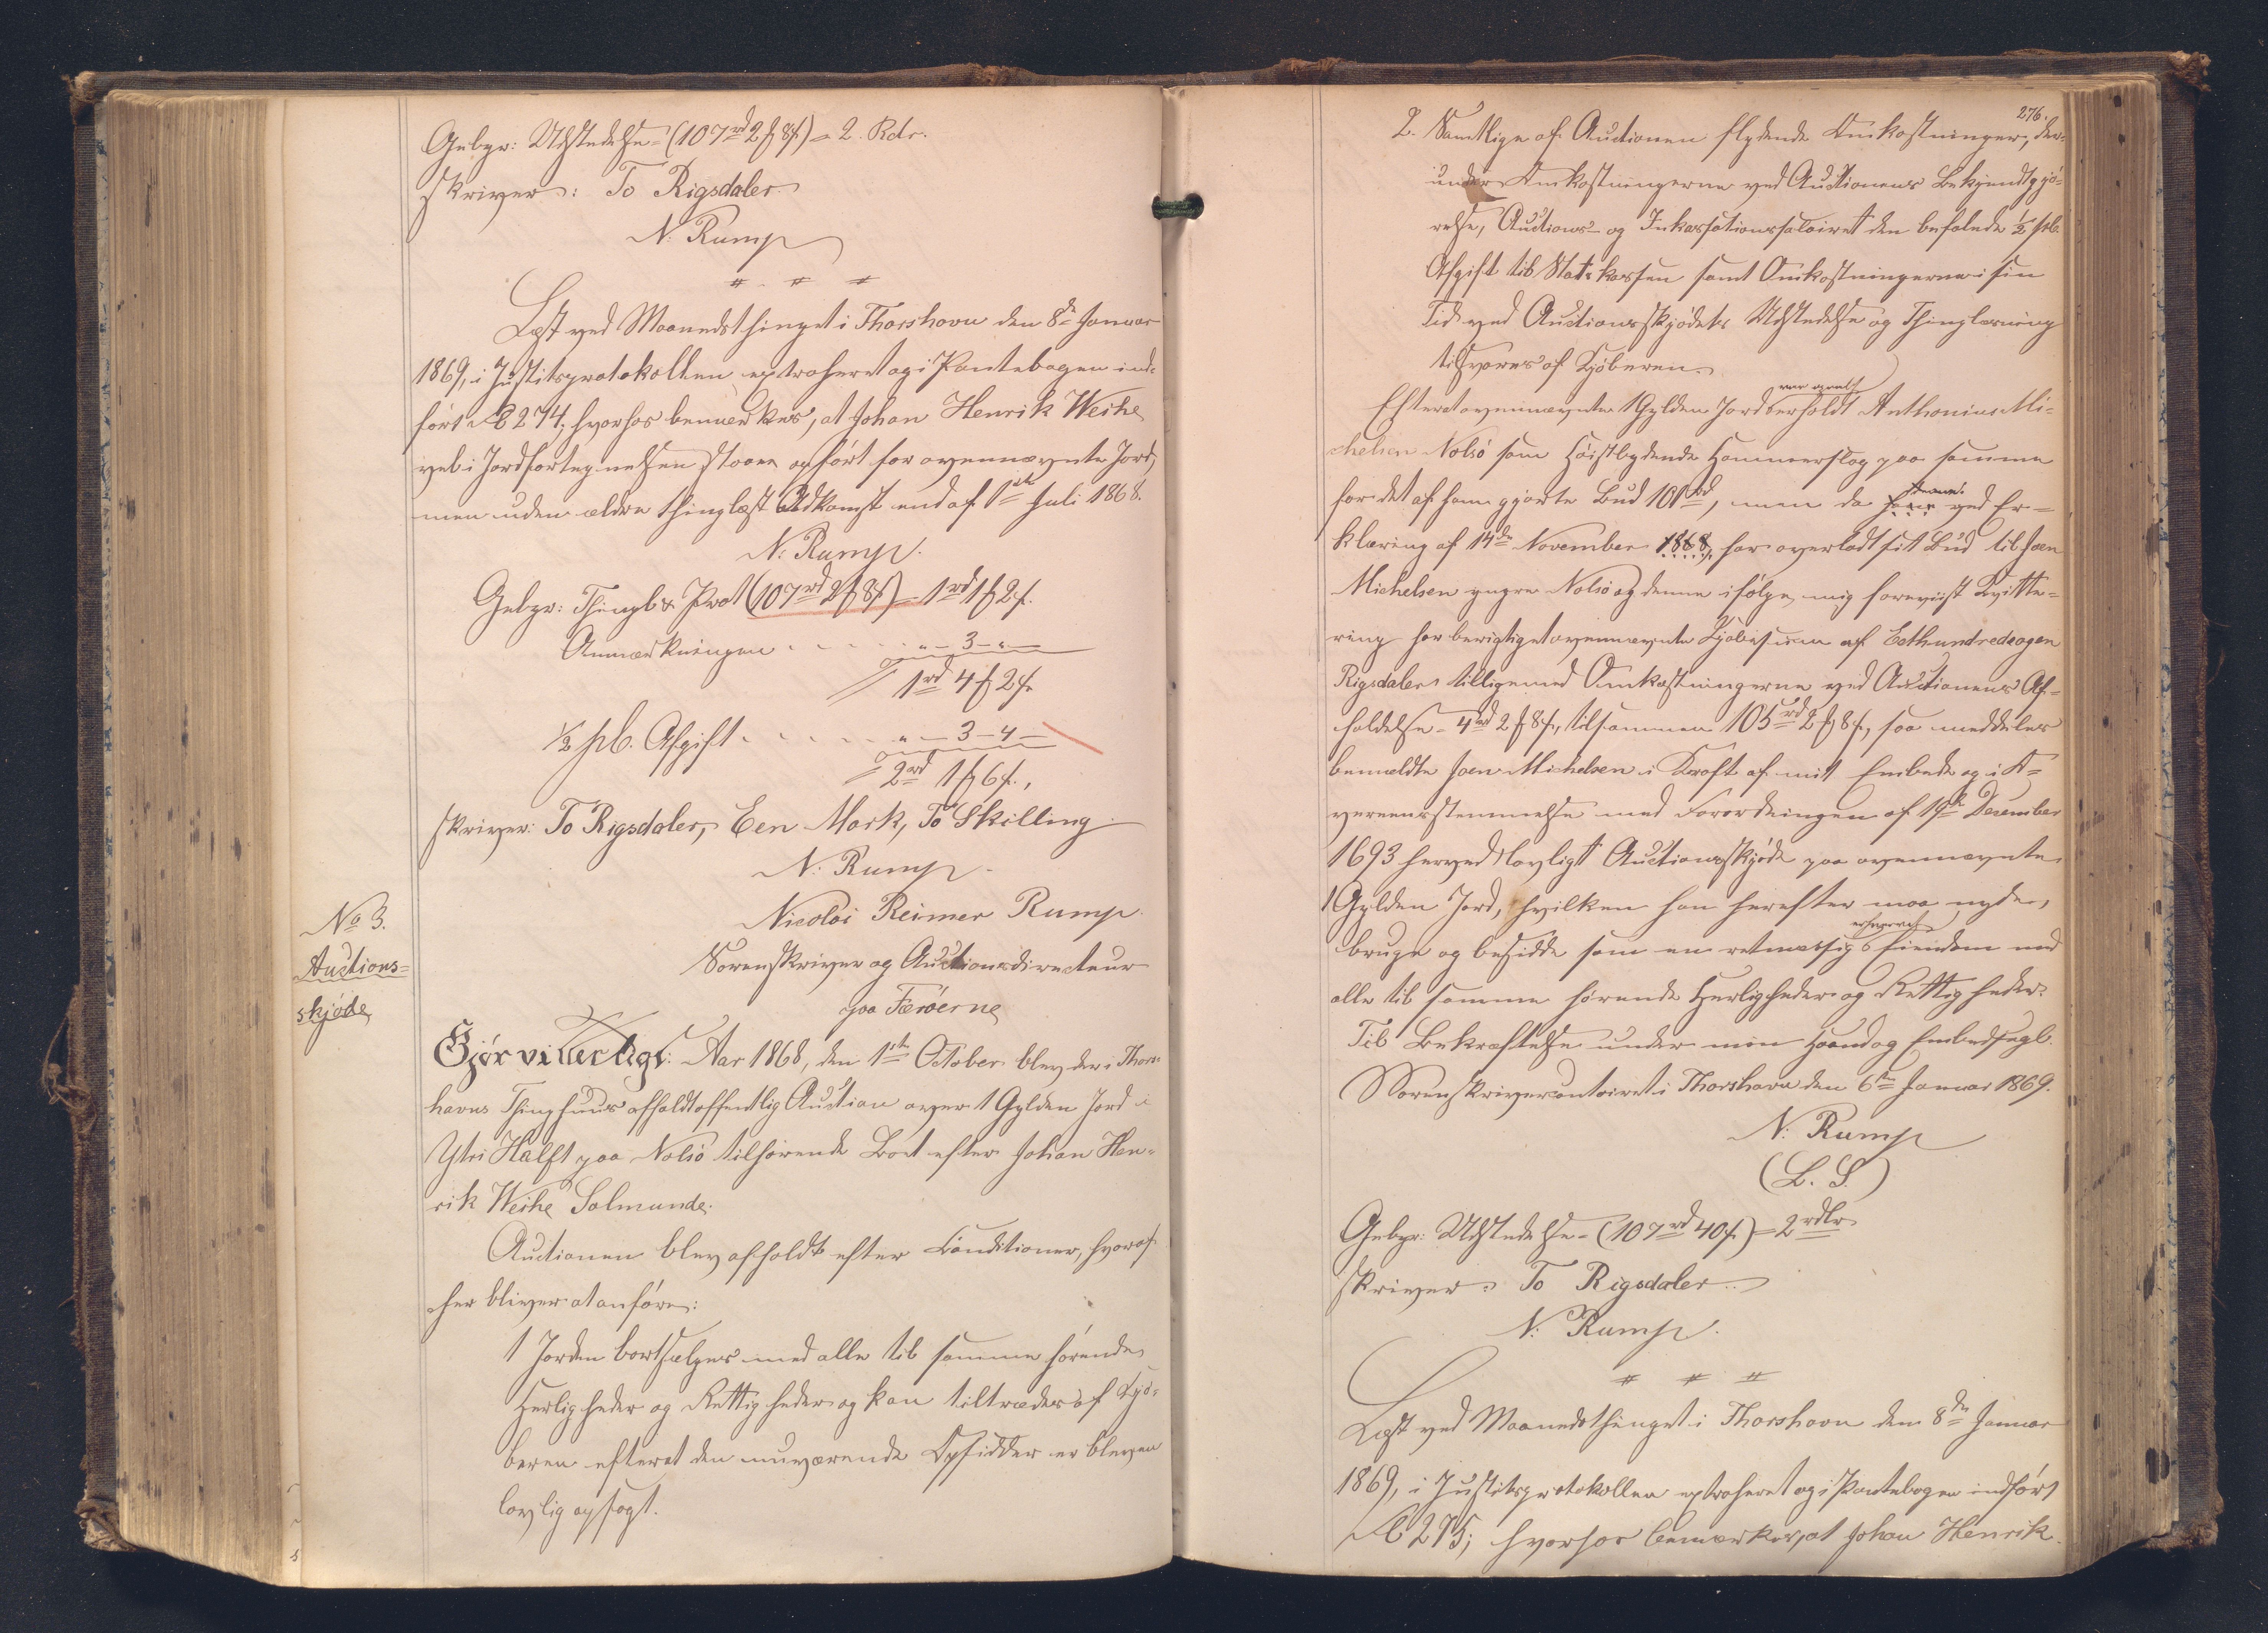 Gebyr: Udstedelse = (107rd 2ʄ 8ſ) = 2 Rdr.
skriver: To Rigsdaler
N. Rump
# - # #
Læst ved Maanedsthinget i Thorshavn den 8de Januar
1869, i Justitsprotokollen extraheret og i Pantebogen ind-
ført Æ 274; hvorhos bemærkes, at Johan Henrik Weihe
vel i Jordfortegnelsen staaer opført for ovennævnte Jord,
men uden ældre thinglæst Adkomst end af 1ste Juli 1868.
N. Rump.
Gebyr: Thingl & Prot (107rd 2ʄ 8ſ) = 1rd 1ʄ 2ſ.
Anmærkningen . . . . . „ - 3 - „ -
1rd 4ʄ 2ſ.
1/2 pCt. Afgift . . . . . „ - 3 - 4 -
2rd 1ʄ 6ſ.,
skriver: To Rigsdaler, Een Mark, To Skilling
N. Rump.
No 3.
Auctions-
skjøde
Nicolai Reimer Rump
Sorenskriver og Auctionsdirecteur
paa Færöerne
Gjør vitterligt: Aar 1868, den 1ste October blev der i Thors-
havns Thinghuus afholdt offentlig Auction over 1 Gylden Jord i
Ytri Halft paa Nolsö tilhørende Boet efter Johan Hen-
rik Weihe Solmunde.
Auctionen blev afholdt efter Conditioner, hvoraf
her bliver at anføre:
1 Jorden bortsælges med alle til samme hørende
Herligheder og Rettigheder og kan tiltrædes af Kjø-
beren efterat den nuværende Opsidder er bleven
lovlig opsagt.
276.
2. Samtlige af Auctionen flydende Omkostninger, der-
under Omkostningerne ved Auctionens Bekjendtgjø-
relse, Auctions- og Inkassationssalairet den befalede 1/2 pCt.
Afgift til Statskassen samt Omkostningerne i sin
Tid ved Auctionsskjødets Udstedelse og Thinglæsning
tilsvares af Kjøberen.
var opraabt
Efterat ovennævnte 1 Gylden Jord erholdt Anthonius Mi-
chelsen Nolsö som høistbydende Hammerslag paa samme
for det af ham gjorte Bud 101rd, men da denne ved Er-
klæring af 14de November 1868, har overladt sit Bud til Joen
Michelsen yngre Nolsö og denne ifølge mig foreviist Qvitte-
ring har berigtiget ovennævnte Kjøbesum af Eethundredeogen
Rigsdaler tilligemed Omkostningerne ved Auctionens Af-
holdelse = 4rd 2ʄ 8ſ, tilsammen 105rd 2ʄ 8ſ, saa meddeles
bemeldte Joen Michelsen i Kraft af mit Embede og i O-
vereensstemmelse med Forordningen af 19de December
1693 herved lovligt Auctionsskjøde paa ovennævnte
1 Gylden Jord, hvilken han herefter maa nyde,
erhvervet
bruge og besidde som en retmæssig Eiendom med
alle til samme hørende Herligheder og Rettigheder.
Til Bekræftelse under min Haand og Embedssegl.
Sorenskrivercontoiret i Thorshavn den 6te Januar 1869.
N. Rump
(L. S.)
Gebyr: Udstedelse = (107rd 40ſ) = 2 rdlr
skriver: To Rigsdaler
N. Rump.
# # #
Læst ved Maanedsthinget i Thorshavn den 8de Januar
1869, i Justitsprotokollen extraheret og i Pantebogen indført
Æ 275; hvorhos bemærkes, at Johan Henrik